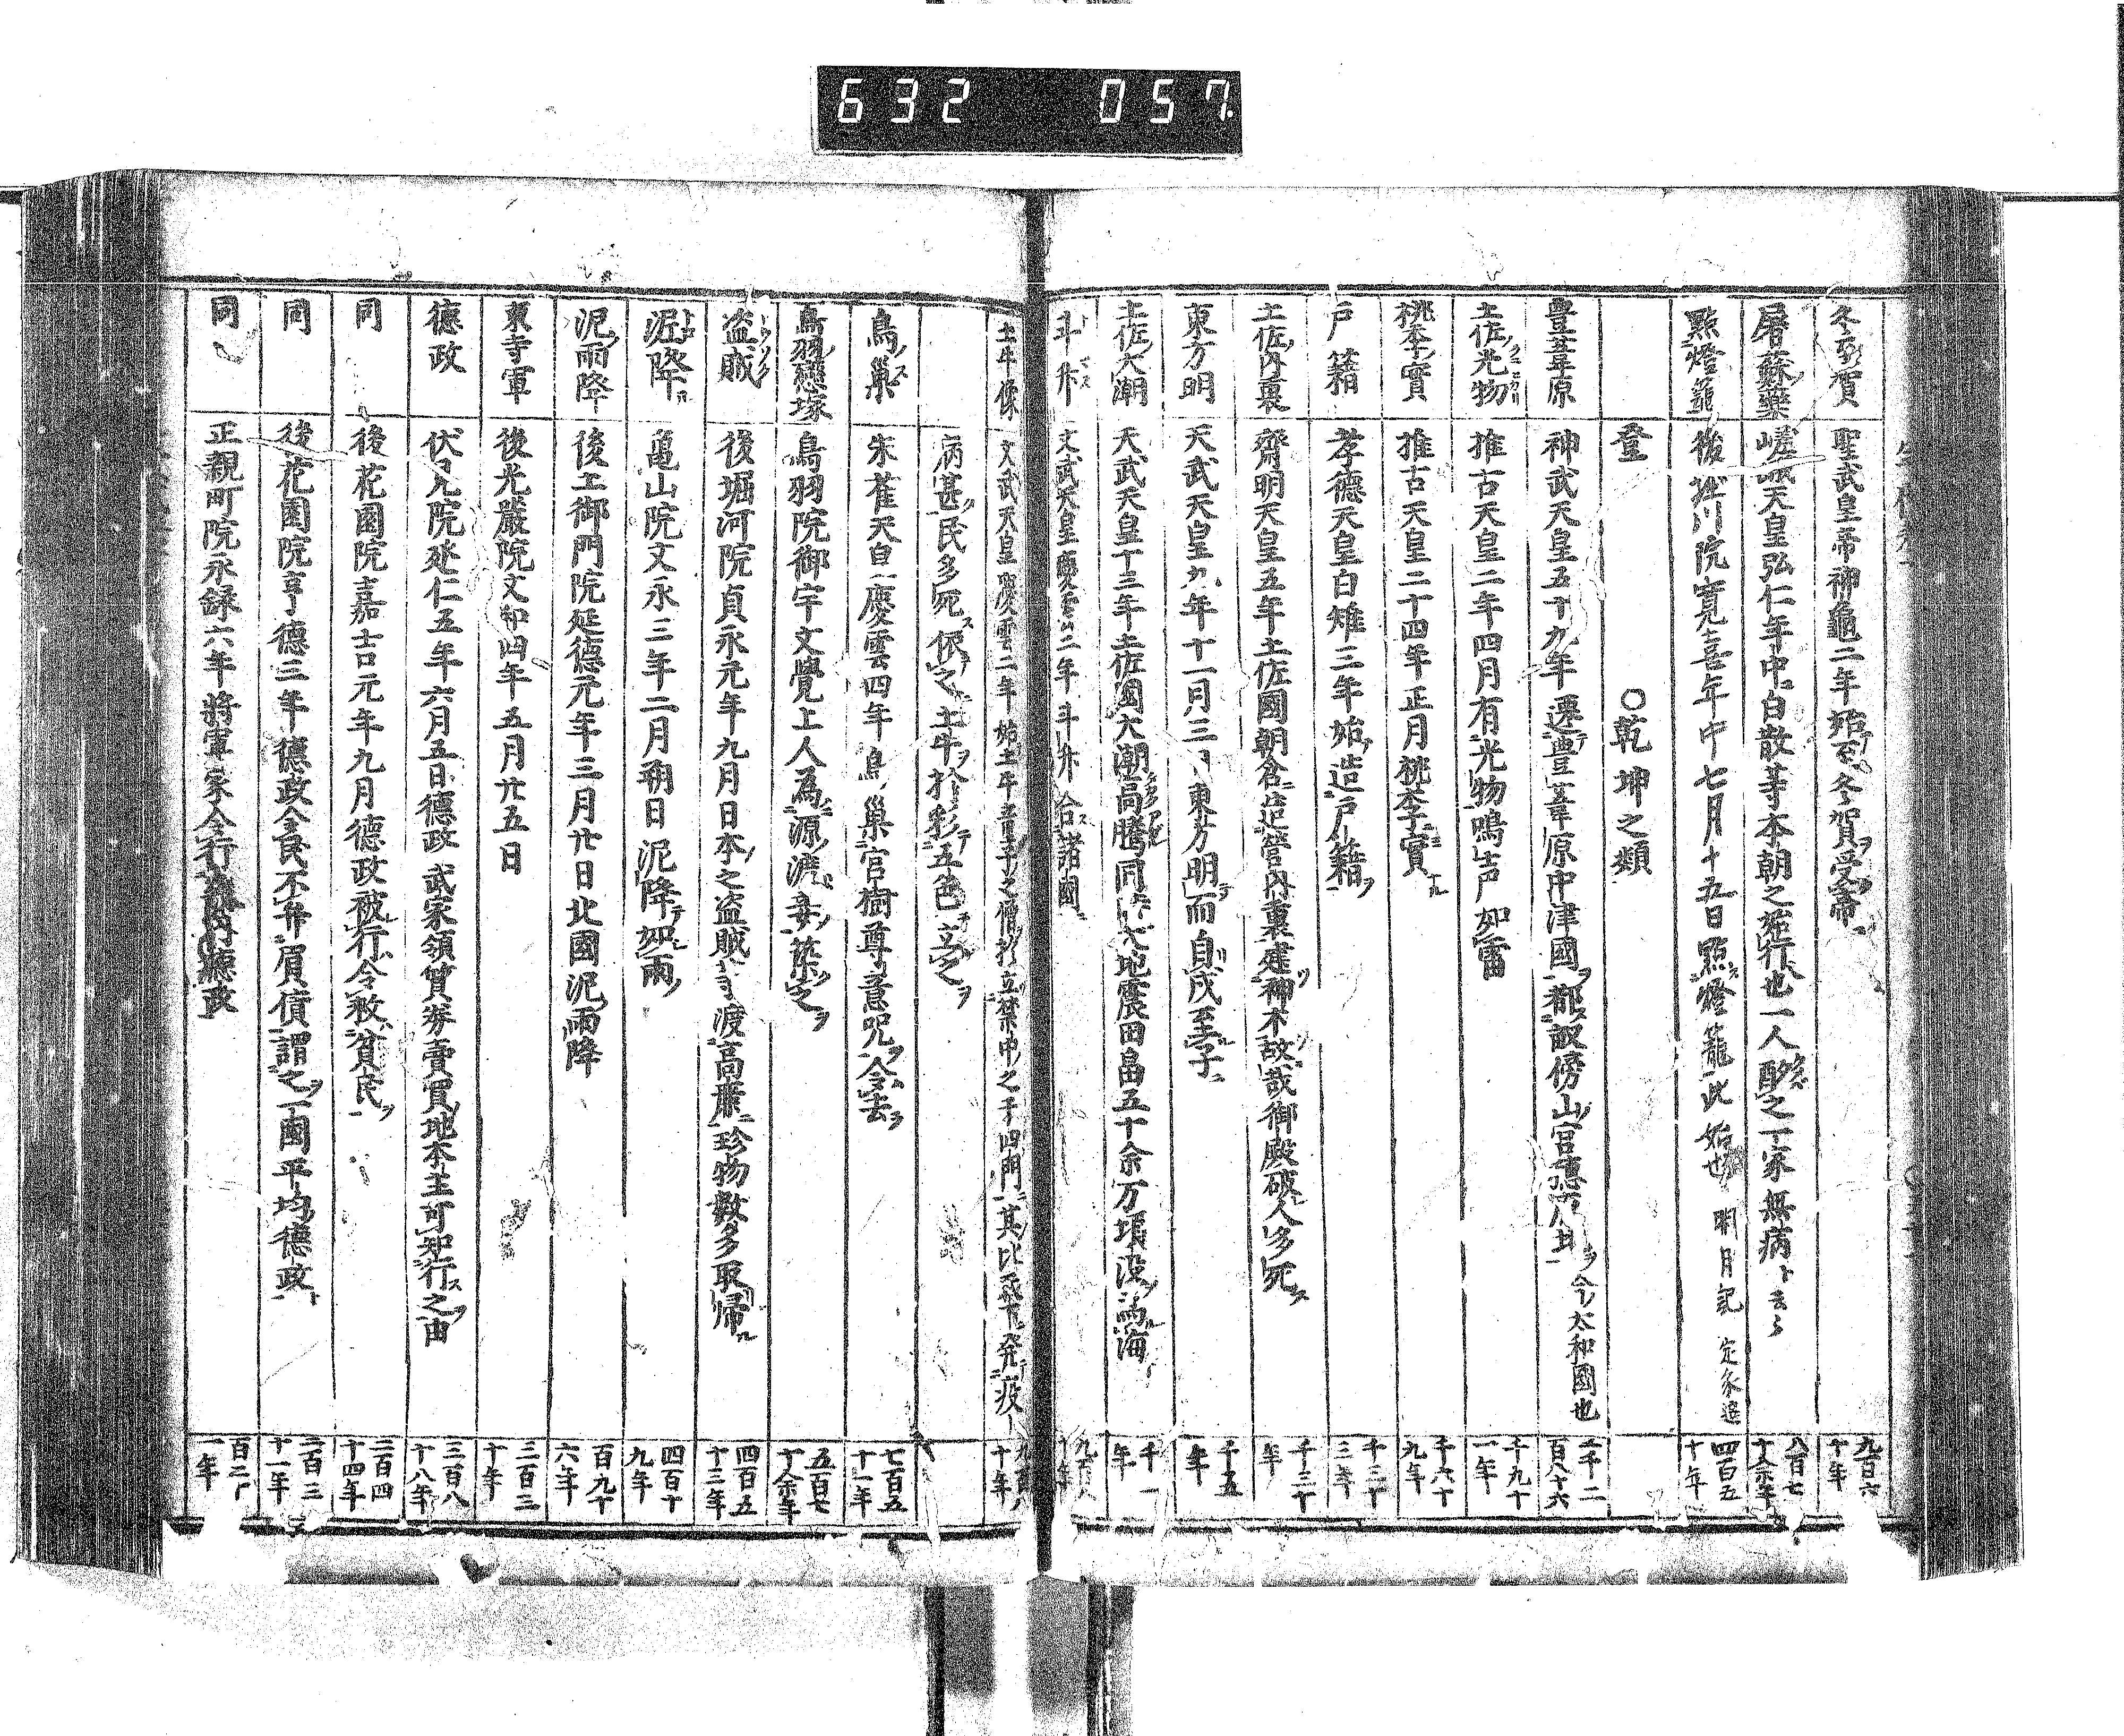 632 057
冬至賀 聖武皇帝神龜二年始至冬賀受帝 九百六十年
屠蘇藥 嵯峨天皇弘仁年中白散等本朝之施行也一人酌之一家無病ト云々 八百七十余年
點燈籠 後堀川院寛喜年中七月十五日點燈籠此始也 明月記 定家 四百五十年
登 〇乾坤之類
豊葦原 神武天皇五十九年遷豊葦原中津國都畝傍山 今太和國也 二千二百八十六
土佐光物 推古天皇二年四月有光物鳴声如雷 千九十一年
桃李實 推古天皇二十四年正月桃李實 千六十九年
戸籍 孝德天皇白雉三年始造戸籍 千三十三年
土佐内裏 齋明天皇五年土佐國朝倉造管内裏建神木故哉御殿破人多死 千三十年
東方明 天武天皇九年十一月三日東方明而自戌至子 千五年
土佐大潮 天武天皇十三年土佐國大潮高騰同 地震田畠五十余万頃没 海 千一年
斗升 文武天皇慶雲二年斗升合諸國
土牛像 文武天皇慶雲二年始土牛 之像 立禁中之于四門其比 発疫
病甚民多死依之土牛於彩五色立之
鳥巣 朱雀天皇慶雲四年鳥巣官樹尊意咒令去 七百五十一年
鳥羽戀塚 鳥羽院御宇文覺上人為源渡妾築之 五百七十余年
盗賊 後堀河院貞永元年九月日本之盗賊 渡高麗珍物数多取帰 四百五十三年
泥降 亀山院文永三年二月朔日泥降如雨 四百十九年
泥雨降 後土御門院延德元年三月廿日北國泥雨降 百九十六年
東寺軍 後光嚴院文和四年五月廿五日 三百三十年
德政 伏見院延仁五年六月五日德政 武家領質券賣買地本主可知行之由 三百八十八年
同 後花園院嘉吉元年九月德政被行令救貧民 二百四十四年
同 後花園院享德三年德政令民不作肩債謂之一國平均德政 二百三十一年
同 正親町院永録六年將軍家令行 德政 百二十一年